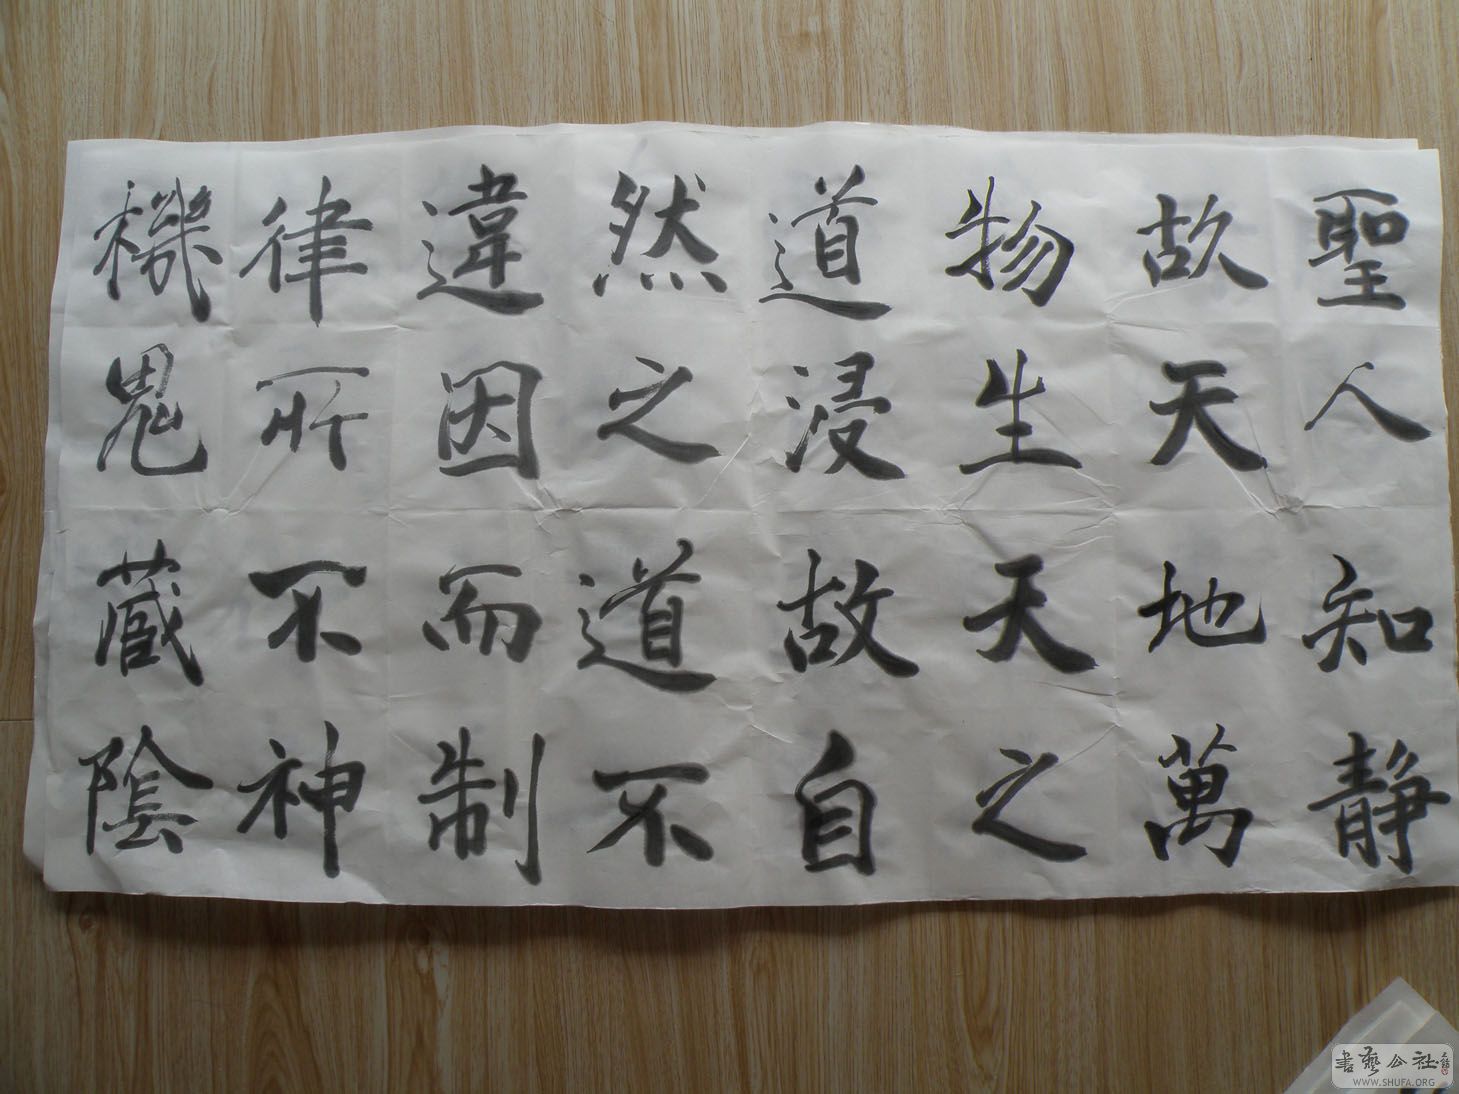 聖人知静
故天地萬
物生天之
道浸故自
然之道不
違因而制
律所不神
機鬼藏陰
書藝公社
WWW.SHUFA.ORG